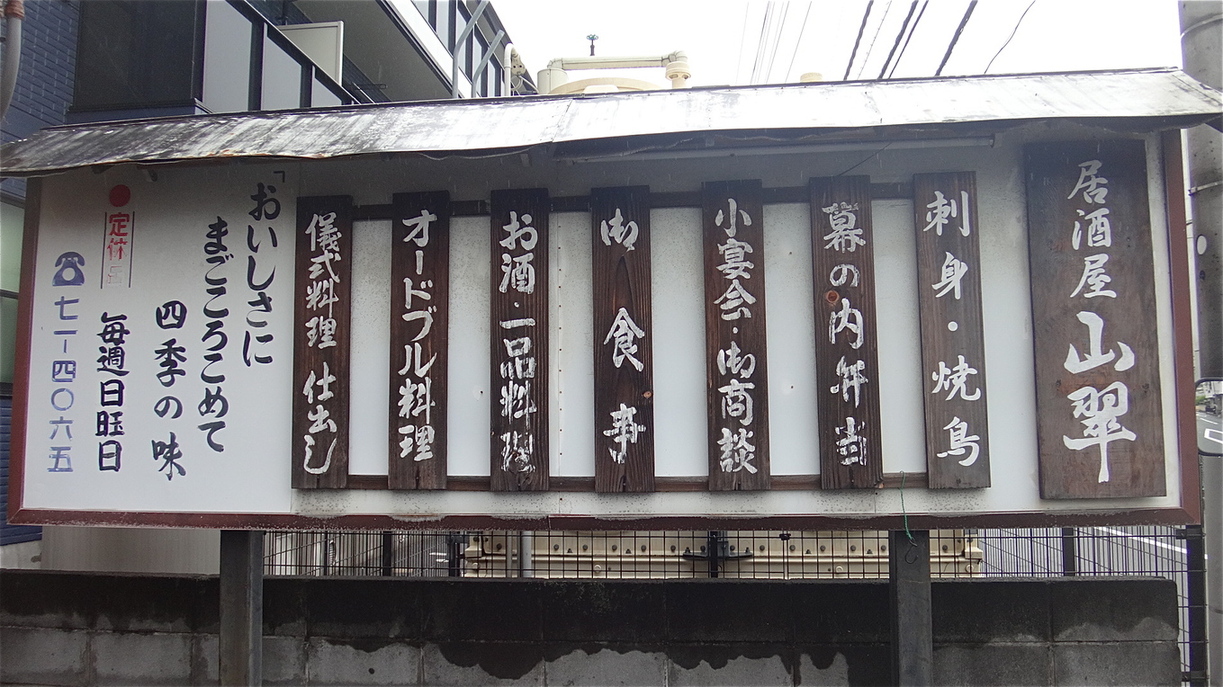 居酒屋 山翠
刺身・焼鳥
幕の内弁当
小宴会・御商談
御食事
お酒・一品料理
オードブル料理
儀式料理 仕出し
「おいしさに
まごころこめて
四季の味
●定休日
毎週日曜日
☎七一−四〇六五